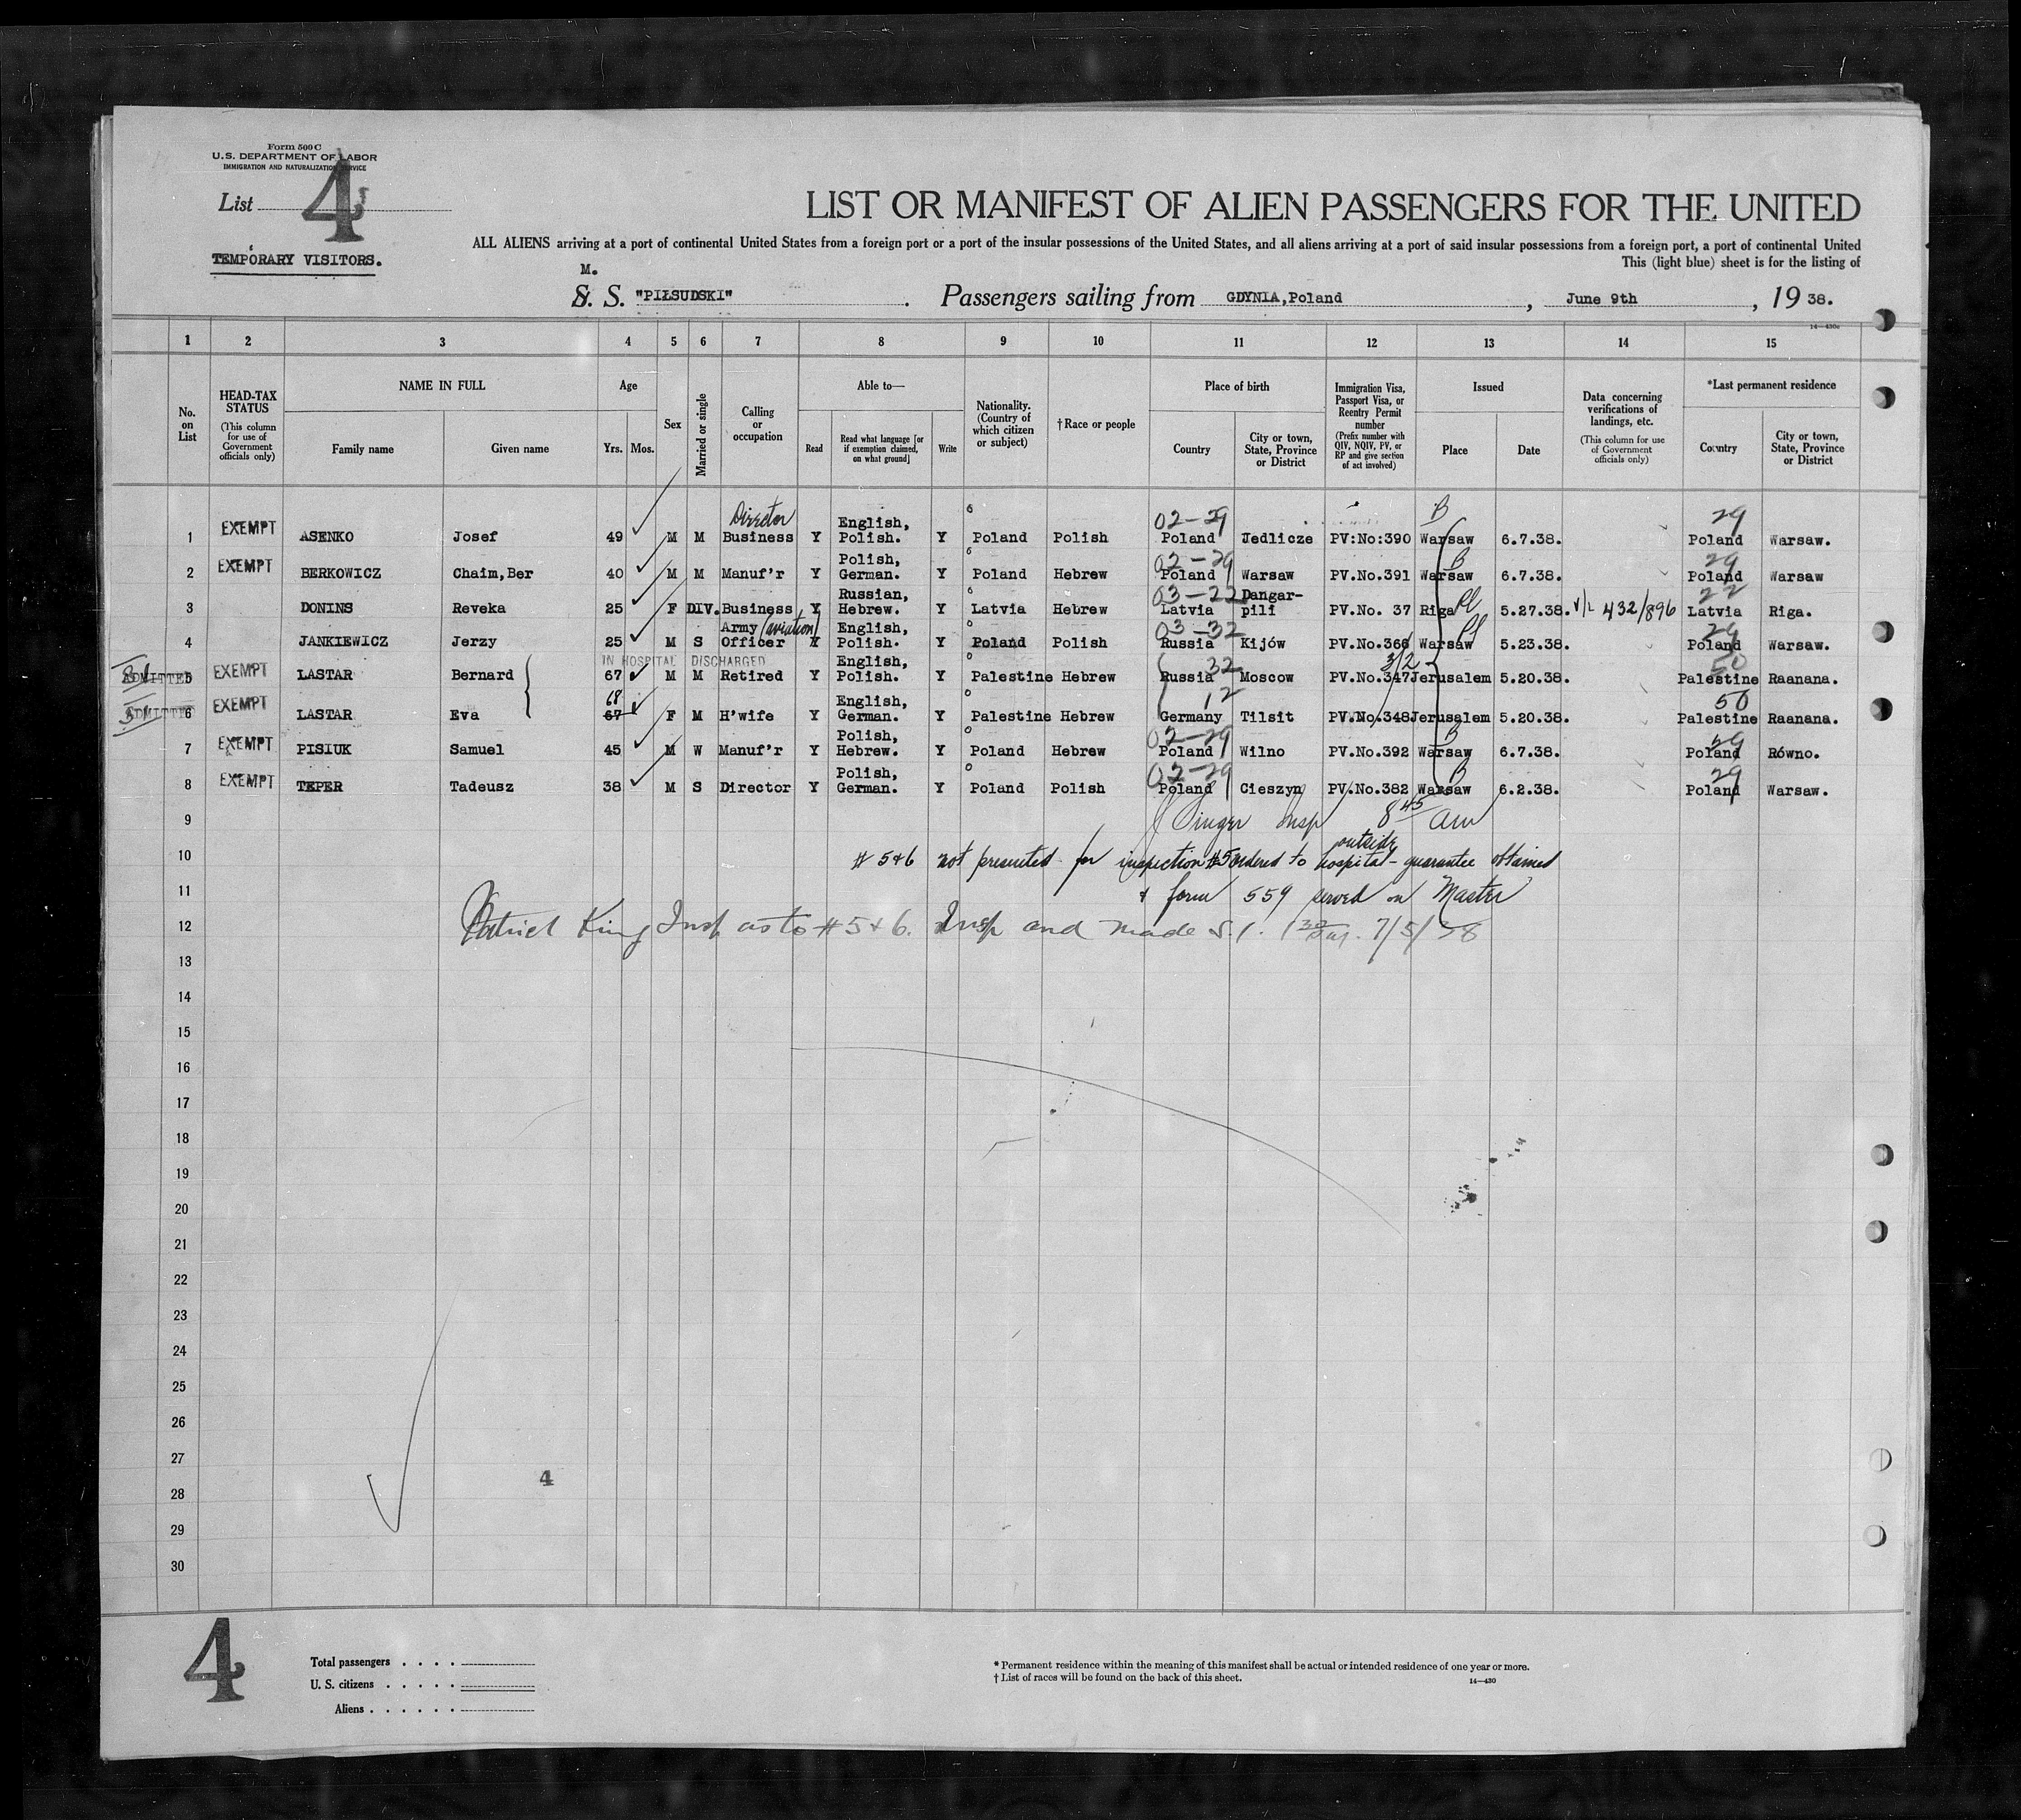 Form 500 C
U.S. DEPARTMENT OF LABOR
IMMIGRATION AND NATURALIZATION SERVICE
List 4
TEMPORARY VISITORS.
LIST OR MANIFEST OF ALIEN PASSENGERS FOR THE UNITED
ALL ALIENS arriving at a port of continental United States from a foreign port or a port of the insular possessions of the United States, and all aliens arriving at a port of said insular possessions from a foreign port, a port of continental United
This (light blue) sheet is for the listing of
M.
S. S. "PIŁSUDSKI". Passengers sailing from GDYNIA,Poland, June 9th, 19 38.
14—430c
1 2 3 4 5 6 7 8 9 10 11 12 13 14 15
No. on List
HEAD-TAX STATUS (This column for use of Government officials only)
NAME IN FULL
Family name Given name
Age
Yrs. Mos.
Sex
Married or single
Calling or occupation
Able to—
Read Read what language [or if exemption claimed, on what ground] Write
Nationality. (Country of which citizen or subject)
†Race or people
Place of birth
Country City or town, State, Province or District
Immigration Visa, Passport Visa, or Reentry Permit number (Prefix number with QIV, NQIV, PV, or RP and give section of act involved)
Issued
Place Date
Data concerning verifications of landings, etc. (This column for use of Government officials only)
*Last permanent residence
Country City or town, State, Province or District
Director English, 02-29 B 29
1 EXEMPT ASENKO Josef 49 M M Business Y Polish. Y Poland Polish Poland Jedlicze PV:No:390 Warsaw 6.7.38. Poland Warsaw.
Polish, 02-29 B 29
2 EXEMPT BERKOWICZ Chaim,Ber 40 M M Manuf'r Y German. Y Poland Hebrew Poland Warsaw PV.No.391 Warsaw 6.7.38. Poland Warsaw
Russian, 03-22 Dangar- Pl 22
3 DONINS Reveka 25 F DIV. Business Y Hebrew. Y Latvia Hebrew Latvia pili PV.No. 37 Riga 5.27.38. V/L 432/896 Latvia Riga.
Army (aviation) English, 03-32 Pl 29
4 JANKIEWICZ Jerzy 25 M S Officer Y Polish. Y Poland Polish Russia Kijów PV.No.366 Warsaw 5.23.38. Poland Warsaw.
IN HOSPITAL DISCHARGED English, 32 3/2 50
ADMITTED 5 EXEMPT LASTAR Bernard 67 M M Retired Y Polish. Y Palestine Hebrew Russia Moscow PV.No.347 Jerusalem 5.20.38. Palestine Raanana.
68 English, 12 50
ADMITTED 6 EXEMPT LASTAR Eva 67 F M H'wife Y German. Y Palestine Hebrew Germany Tilsit PV.No.348 Jerusalem 5.20.38. Palestine Raanana.
Polish, 02-29 B 29
7 EXEMPT PISIUK Samuel 45 M W Manuf'r Y Hebrew. Y Poland Hebrew Poland Wilno PV.No.392 Warsaw 6.7.38. Poland Równo.
Polish, 02-29 B 29
8 EXEMPT TEPER Tadeusz 38 M S Director Y German. Y Poland Polish Poland Cieszyn PV.No.382 Warsaw 6.2.38. Poland Warsaw.
9 Singer Insp 8 45 am
outside
10 # 5+6 not presented for inspection #5 ordered to hospital - guarantee obtained
11 + form 559 served on Master
12 Patrick King Insp as to # 5 + 6. Insp and made S.I. 7/5/38
13
14
15
16
17
18
19
20
21
22
23
24
25
26
27
4
28
29
30
4
Total passengers . . . .
U. S. citizens . . . . .
Aliens . . . . . .
* Permanent residence within the meaning of this manifest shall be actual or intended residence of one year or more.
† List of races will be found on the back of this sheet.
14—430